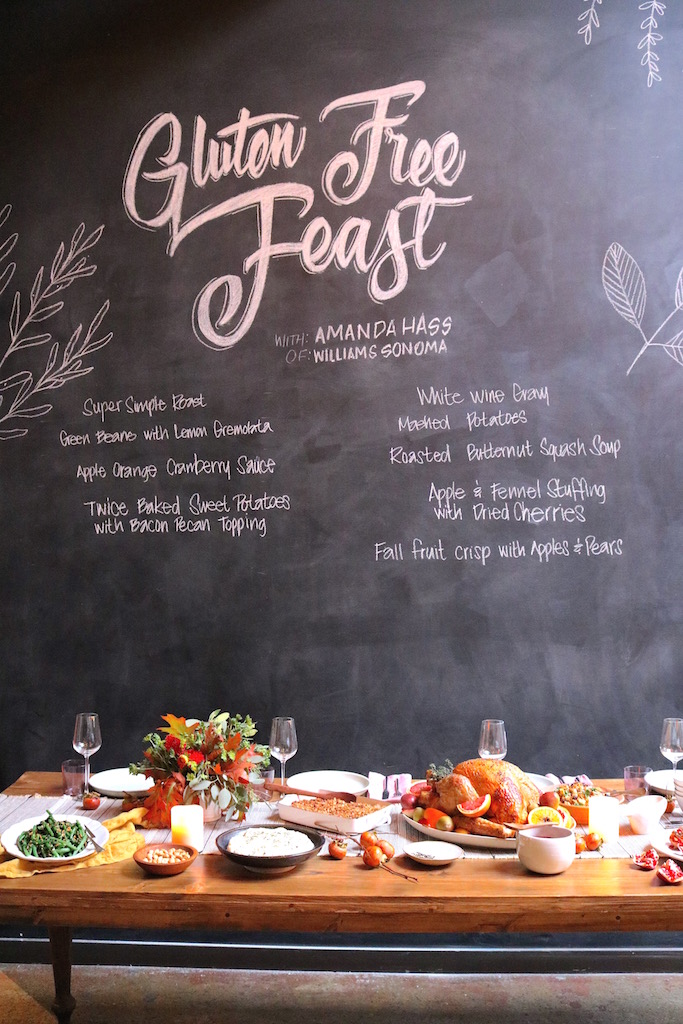 Gluten Free
Feast
WITH: AMANDA HASS
OF: WILLIAMS SONOMA
Super Simple Roast
Green Beans with Lemon Gremolata
Apple Orange Cranberry Sauce
Twice Baked Sweet Potatoes
with Bacon Pecan Topping
White Wine Gravy
Mashed Potatoes
Roasted Butternut Squash Soup
Apple & Fennel Stuffing
with Dried Cherries
Fall fruit crisp with Apples & Pears